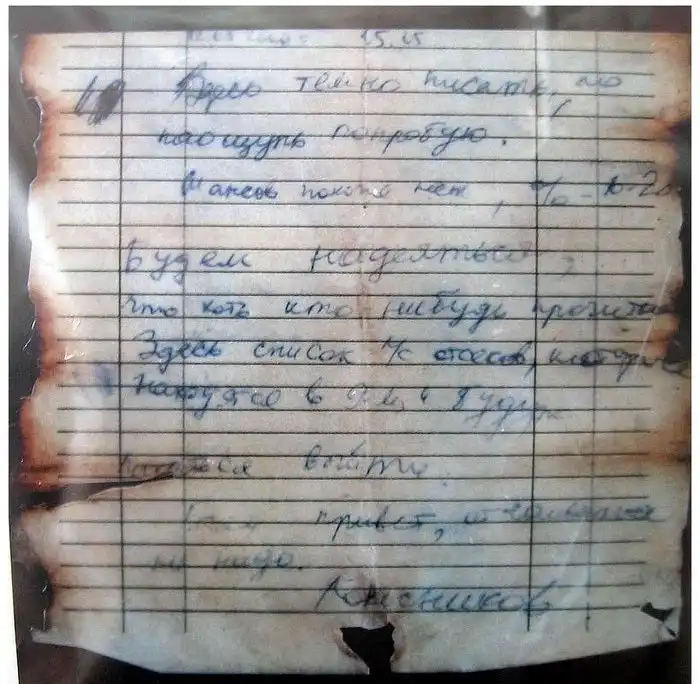 15.15
Здесь темно писать, но
наощупь попробую.
Шансов похоже нет, % - 10-20.
Будем надеяться,
что хоть кто нибудь прочитает
Здесь список л/с отсеков, которые
находятся в 9-м и будут
пытаться выйти.
привет, отчаиваться
не надо.
Колесников